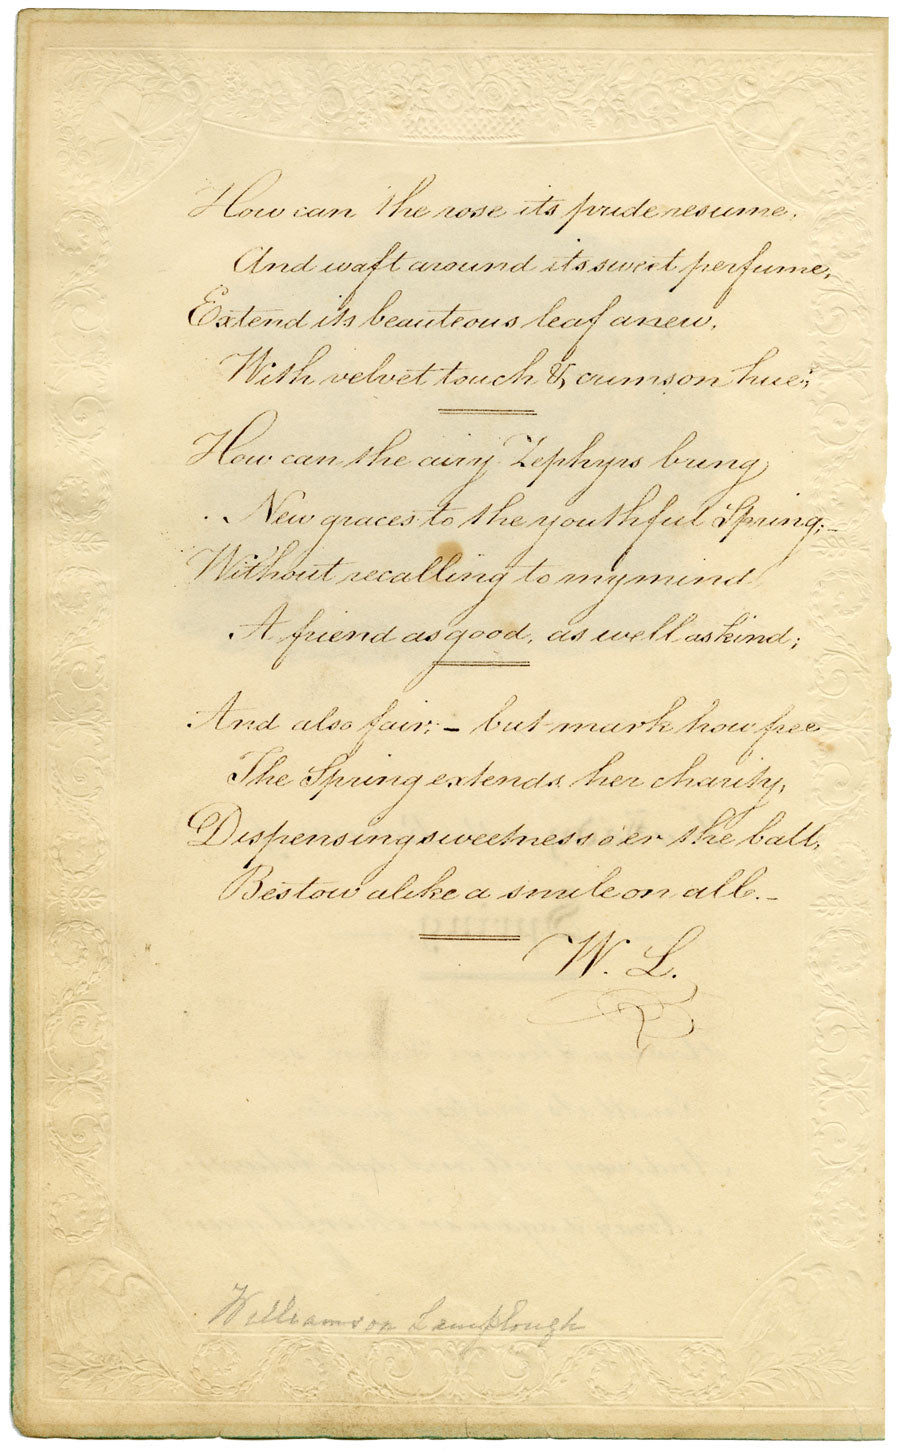 How can the rose its pride resume,
And waft around its sweet perfume,
Extend its beauteous leaf anew,
With velvet touch & crimson hue;
How can the airy Zephyrs bring,
New graces to the youthful Spring;—
Without recalling to my mind
A friend as good, as well as kind;
And also fair; – but mark how free
The Spring extends her charity,
Dispensing sweetness o'er the ball,
Bestow alike a smile on all. –
W. L.
Williamson Lamplough